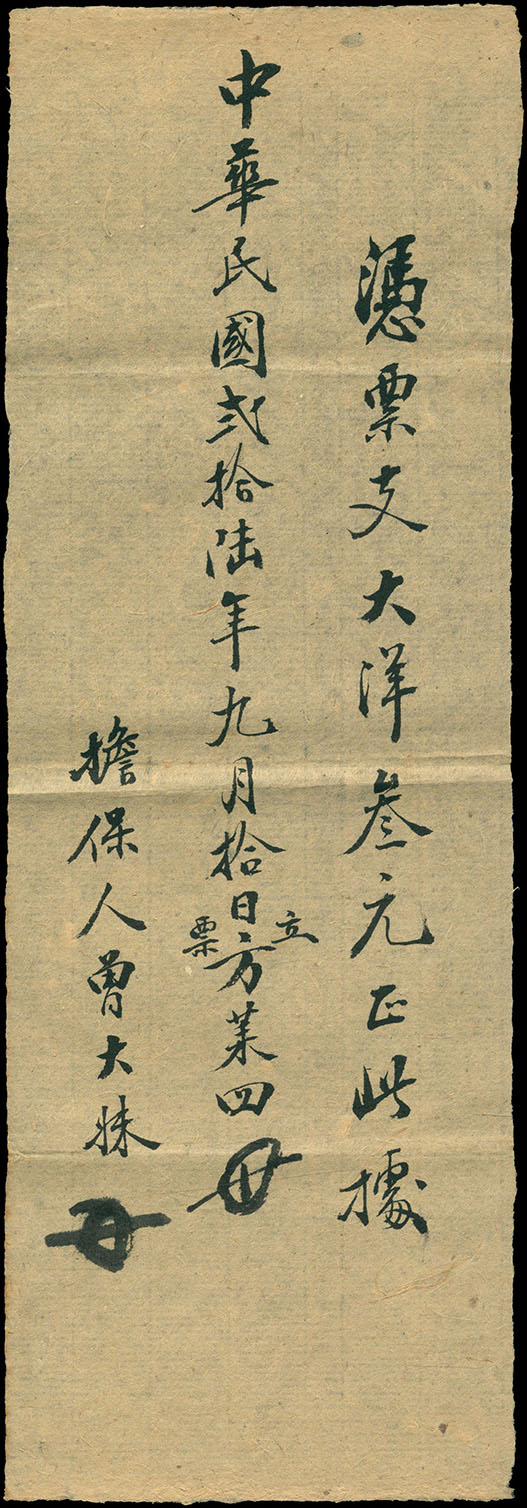 憑票支大洋叁元正此據
中華民國弍拾陸年九月拾日立票方茉四
擔保人曾大妹